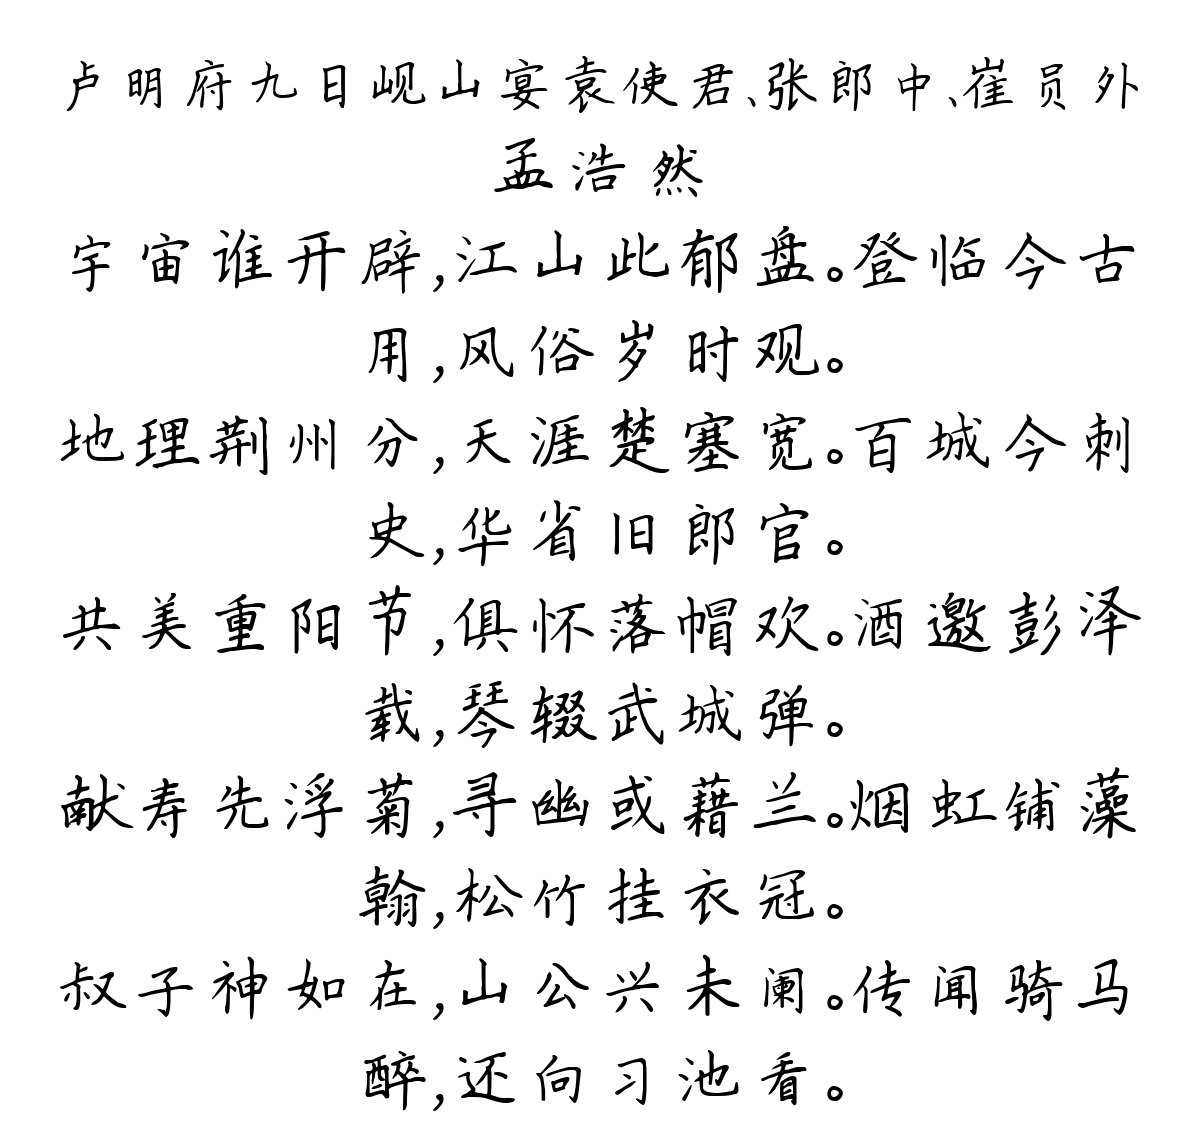 卢明府九日岘山宴袁使君、张郎中、崔员外
孟浩然
宇宙谁开辟,江山此郁盘。登临今古
用,风俗岁时观。
地理荆州分,天涯楚塞宽。百城今刺
史,华省旧郎官。
共美重阳节,俱怀落帽欢。酒邀彭泽
载,琴辍武城弹。
献寿先浮菊,寻幽或藉兰。烟虹铺藻
翰,松竹挂衣冠。
叔子神如在,山公兴未阑。传闻骑马
醉,还向习池看。